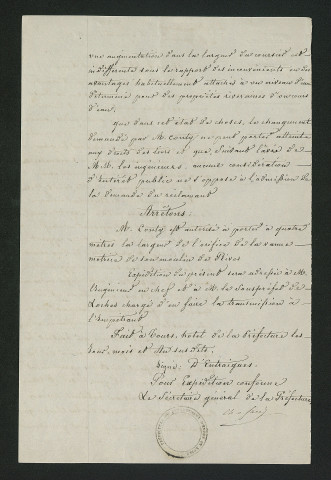 une augmentation dans la largeur du coursier est
indifférente sous le rapport des inconvénients ou des
avantages habituellement attachés à un niveau d'eau
déterminé pour des propriétés riveraines d'un cours
d'eau;
que dans cet état de choses, le changement
demandé par M. ne peut porter atteinte
aux droits des tiers et que, suivant l'avis de
M.M. les ingénieurs, aucune considération
d'intérêt public ne s'oppose à l'admission de
la demande du réclamant
Arrêtons:
M. est autorisé à porter à quatre
mètres la largeur de l'orifice de la vanne
motrice de son moulin de Rives
Expédition du présent sera adressée à M.
l'Ingénieur en chef et à M. le Sous préfet de
Loches chargé d'en faire la transmission à
l'Impétrant
Fait à Tours, hôtel de la Préfecture les
jour, mois et an susdits.
Signé: D'Entraigues.
Pour Expédition conforme
Le Secrétaire général de la Préfecture